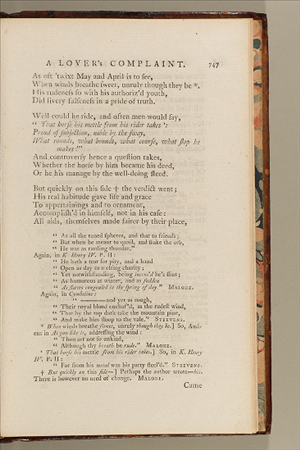 A LOVER's COMPLAINT. 747
As oft 'twixt May and April is to see,
When winds breathe sweet, unruly though they be *.
His rudeness so with his authoriz'd youth,
Did livery falseness in a pride of truth.
Well could he ride, and often men would say,
“ That horse his mettle from his rider takes ’:
Proud of subjection, noble by the sway,
What rounds, what bounds, what course, what stop he
makes!”
And controversy hence a question takes,
Whether the horse by him became his deed,
Or he his manage by the well-doing steed.
But quickly on this side † the verdict went;
His real habitude gave life and grace
To appertainings and to ornament,
Accomplish'd in himself, not in his case:
All aids, themselves made fairer by their place,
“ As all the tuned spheres, and that to friends;
“ But when he meant to quail, and shake the orb,
“ He was as rattling thunder.”
Again, in K. Henry IV. P. II:
“ He hath a tear for pity, and a hand
“ Open as day to melting charity;
“ Yet notwithstanding, being incens'd he's flint;
“ As humorous as winter, and as sudden
“ As flaws congealed in the spring of day.” MALONE.
Again, in Cymbeline:
“ ———and yet as rough,
“ Their royal blood enchaf'd, as the rudest wind,
“ That by the top doth take the mountain pine,
“ And make him stoop to the vale.” STEEVENS.
* When winds breathe sweet, unruly though they be.] So, Ami-
ens in As you like it, addressing the wind:
“ Thou art not so unkind,
“ Although thy breath be rude.” MALONE.
’ That horse his mettle from his rider takes.] So, in K. Henry
IV. P. II:
“ For from his metal was his party steel'd.” STEEVENS.
† But quickly on this side—] Perhaps the author wrote—his.
There is however no need of change. MALONE.
Came